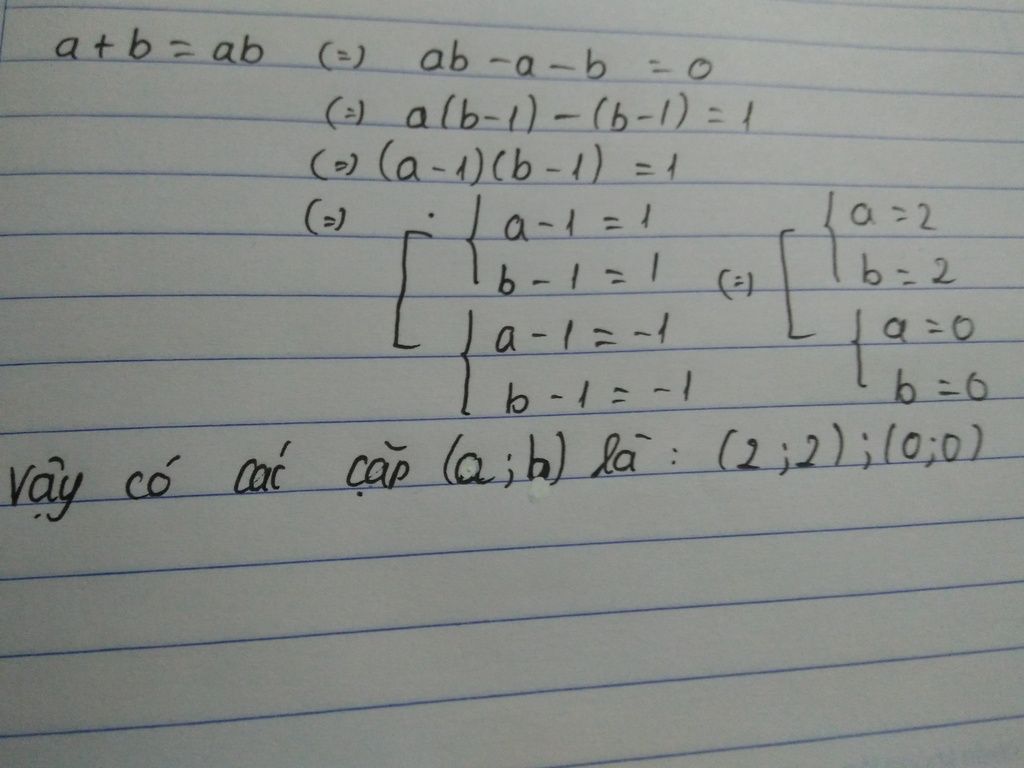 a + b = ab (=) ab - a - b = 0
(=) a(b-1) - (b-1) = 1
(=) (a-1)(b-1) = 1
(=) [ { a - 1 = 1 (=) [ { a = 2
b - 1 = 1 b = 2
{ a - 1 = -1 { a = 0
b - 1 = -1 b = 0
Vậy có các cặp (a;b) là : (2;2);(0;0)